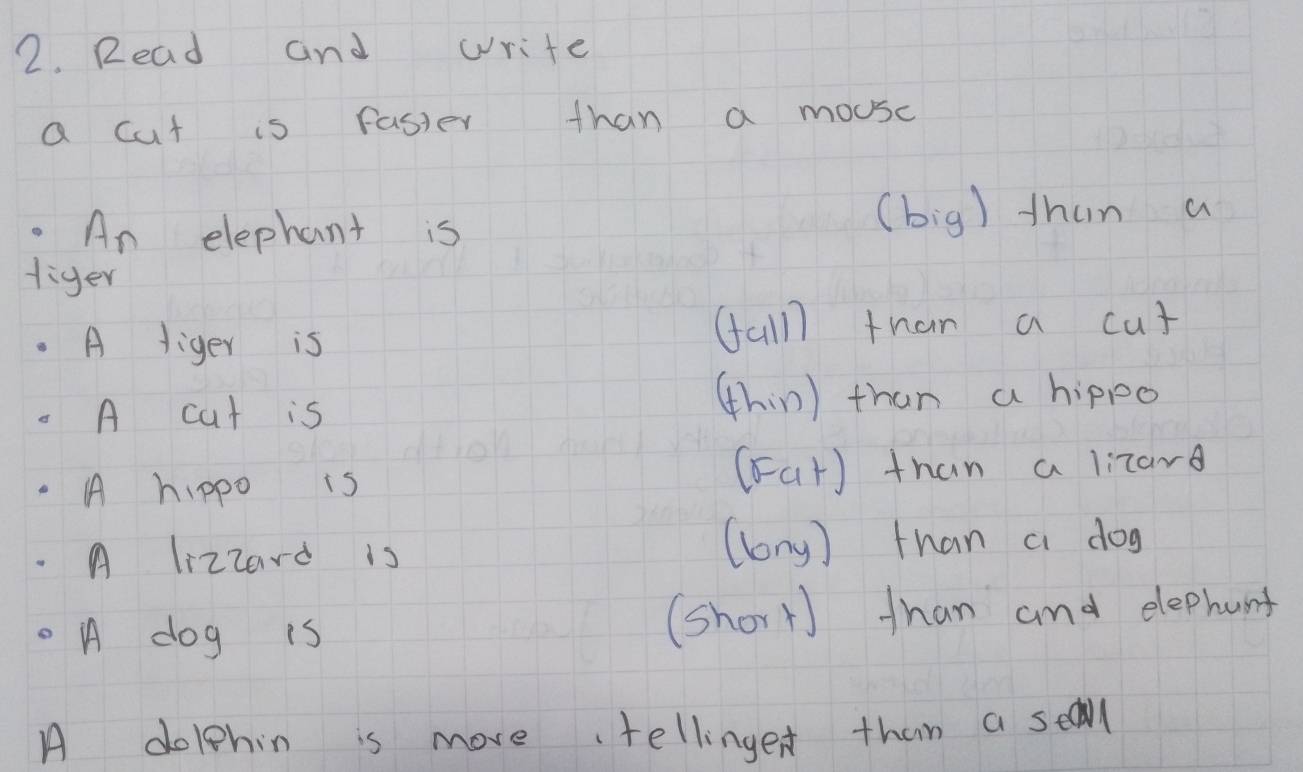 2. Read and write
a cat is faster than a mouse
• An elephant is (big) than a
tiger
• A tiger is (tall) than a cat
• A cat is (thin) than a hippo
• A hippo is (Fat) than a lizard
• A lizzard is (long) than a dog
• A dog is (short) than and elephant
A dolphin is more .tellingent than a seall